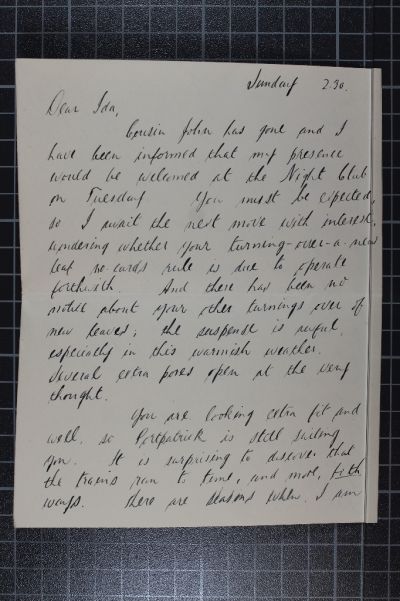 Sunday 2.30.
Dear Ida,
Cousin John has gone and I
have been informed that my presence
would be welcomed at the Night Club
on Tuesday You must be expected,
so I await the next move with interest,
wondering whether your turning-over-a-new
leaf no-cards rule is due to operate
forthwith. And there has been no
notice about your other turnings over of
new leaves; the suspense is awful,
especially in this warmish weather.
Several extra pores open at the very
thought.
You are looking extra fit and
well, so Portpatrick is still suiting
you. It is surprising to discover that
the trains run to time, and more, both
ways. There are seasons when I am